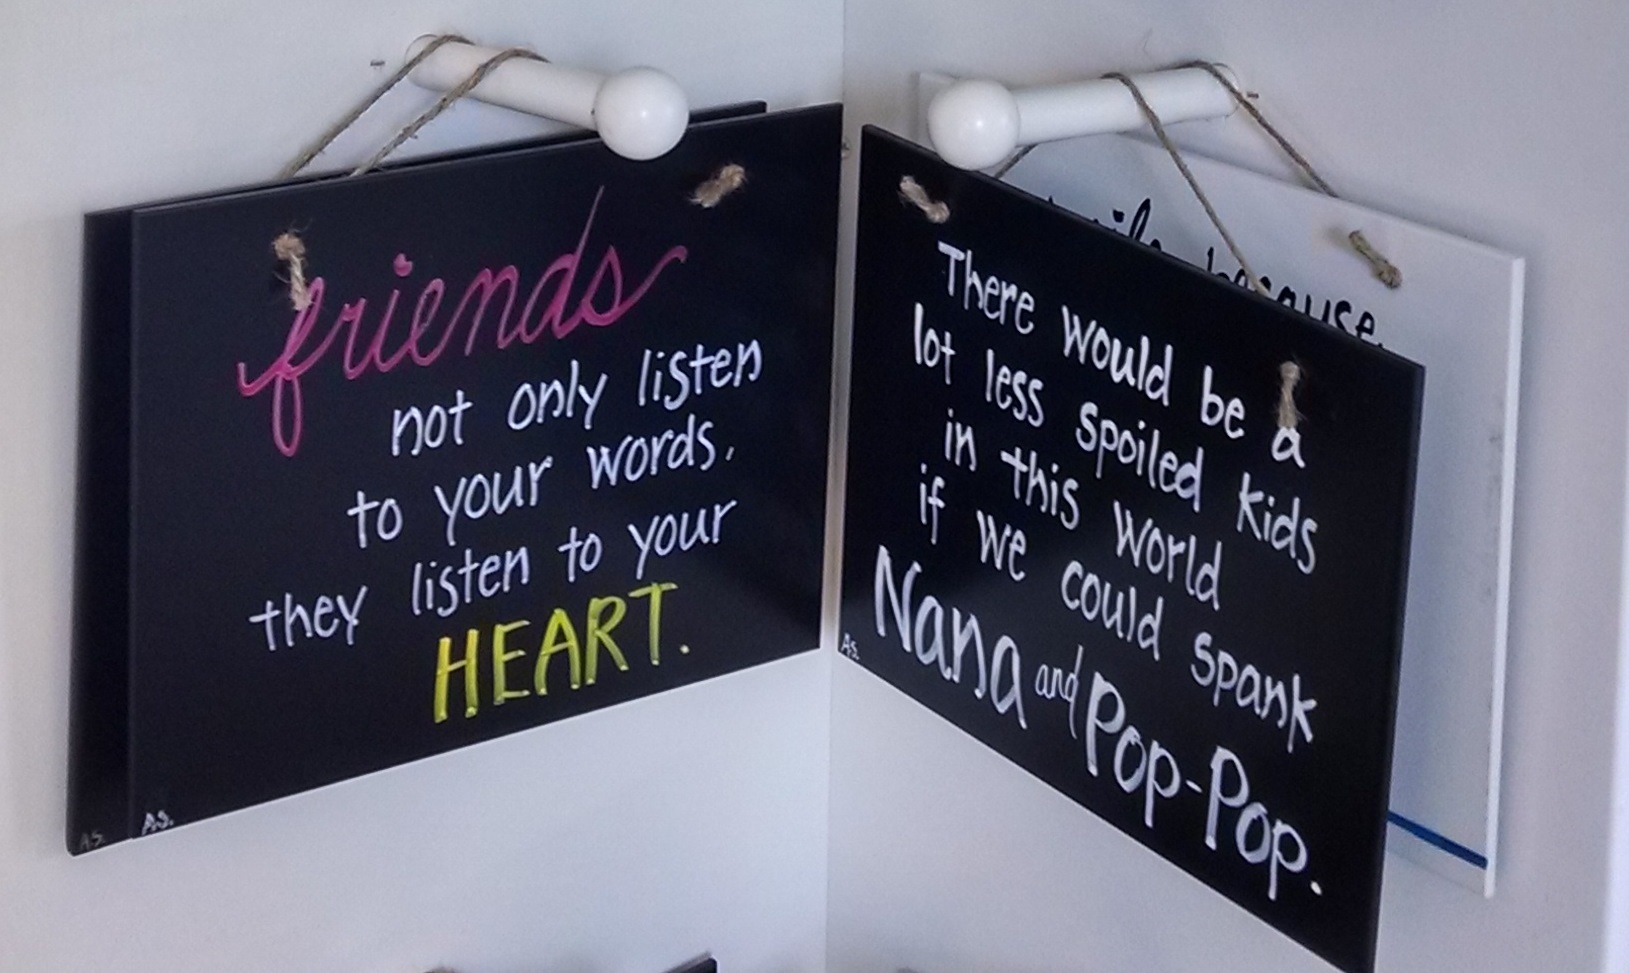 friends
not only listen
to your words,
they listen to your
HEART.
A.S.
A.S.
There would be a
lot less spoiled kids
in this world
if we could spank
Nana and Pop-Pop.
A.S.
because